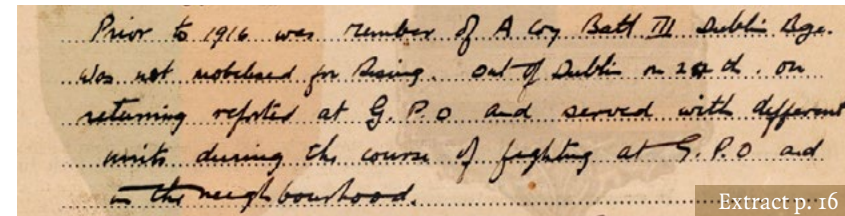 Prior to 1916 was member of A Coy Batt III Dublin Bge.
Was not mobilised for Rising. Out of Dublin on 22d. on
returning reported at G.P.O and served with different
units during the course of fighting at G.P.O and
in the neighbourhood.
Extract p. 16